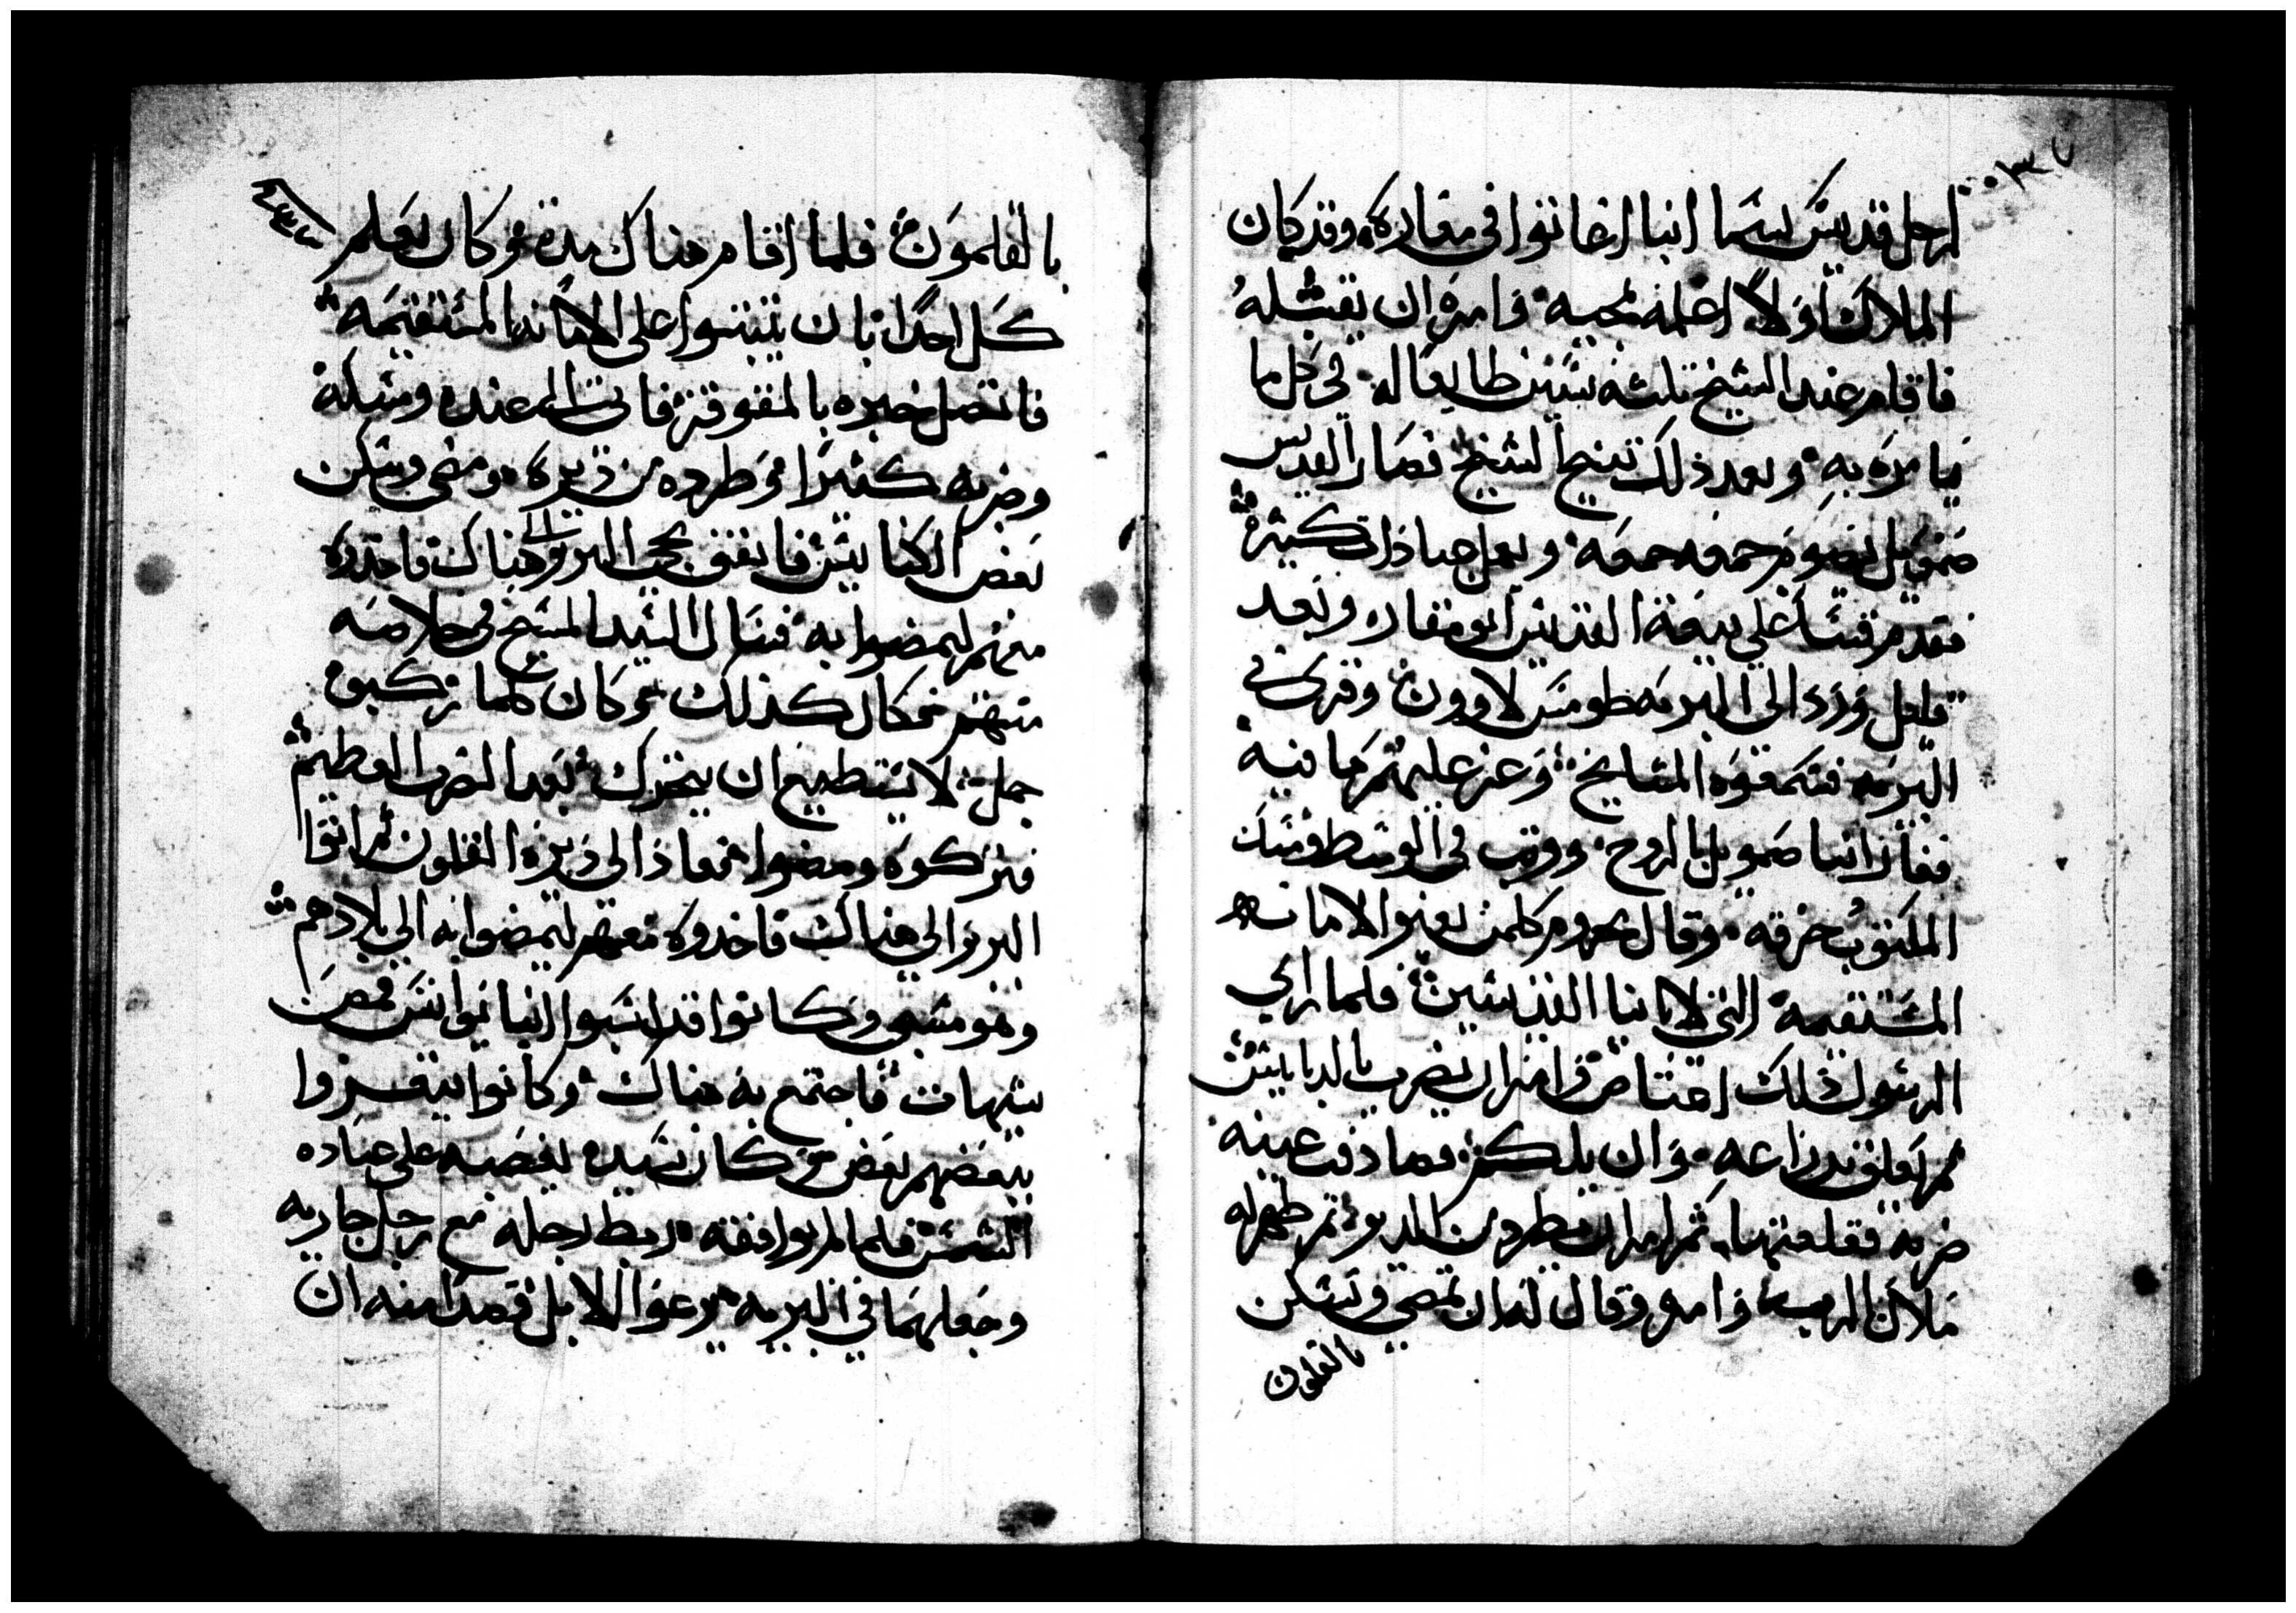 لرجل قديس يسما انبا اغاتوا في مغاره وقد كان
الملاك اولاً اعلمه بمجيه وامره ان يقبله
فاقام عند الشيخ ثلثه سنين طايعا له في كل ما
يامره به وبعد ذلك تنيح الشيخ فصار القديس
صمويل يصوم جمعه جمعه ويعمل عبادات كثيره
فقدم قسا على بيعة القديس ابو مقار وبعد
قليل ورد الى البريه طومس لاوون وقرى في
البريه فسمعوه المشايخ وعرف عليهم ما فيه
فغار انبا صمويل بالروح ووثب في الوسط ومسك
المكتوب خرقه وقال محروم كلمن يغير الامانه
المستقيمه التي لابانا القديسين فلما راي
الرسول ذلك اغتاض وامر ان يضرب بالدبابيس
ثم يعلق بدراعه وان يلكم فصادفت عينه
ضربه فقلعتها ثم امر ان يطرد من الدير ثم ظهر له
ملاك الرب وامره وقال له ان تمضي وتسكن
بالقلمون
بالقلمون فلما اقام هناك مدة وكان يعلم
كل احدا بان يثبتوا على الامانه المستقيمه
فاتصل خبره بالمقوقز فاتى الى عنده ومسكه
وضربه كثيرا وطرده من ديره ومضى وسكن
بعض الكنايس فاتفق مجي البربر الى هناك فاخدوه
معهم ليمضوا به فسال السيد المسيح في خلاصه
منهم فكان كذلك وكان كلما ركبوه
جمل لا يستطيع ان يتحرك بعد الضرب العظيم
فتركوه ومضوا فعاد الى ديره القلمون ثم اتوا
البربر الى هناك فاخدوه معهم ليمضوا به الي بلادهم
وهو مسبي وكانوا قد اسبوا انبا يوانس قمص
شيهات فاجتمع به هناك وكانوا يتعزوا
ببعضهم بعض وكان سيده يغصبه على عباده
الشمس فلما لم يوافقه ربط رجله مع رجل جاريه
وجعلهما في البريه يرعوا الابل قصدا منه ان